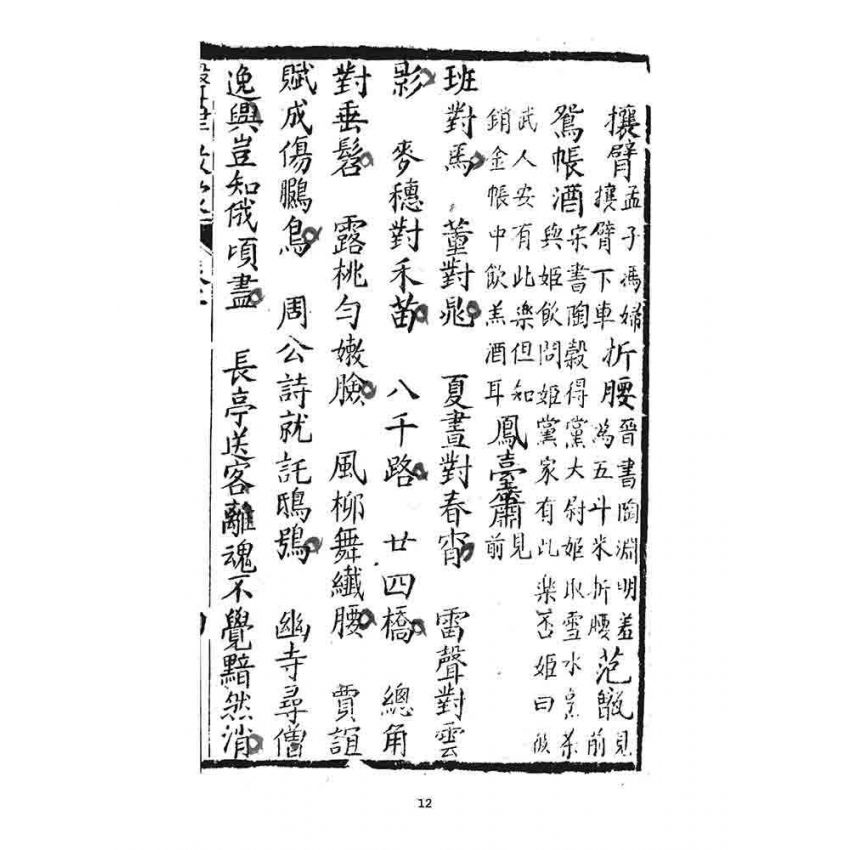 攘臂孟子馮婦攘臂下車折腰晉書陶淵明羞為五斗米折腰范甑見前
鴛帳酒宋書陶穀得黨大尉姬取雪水烹茶與姬飲問姬黨家有此樂否姬曰彼
武人安有此樂但知銷金帳中飲羔酒耳鳳臺簫見前
班對馬 董對晁 夏晝對春宵 雷聲對雲
影 麥穗對禾苗 八千路 廿四橋 總角
對垂髫 露桃勻嫩臉 風柳舞纖腰 賈誼
賦成傷鵩鳥 周公詩就託鴟鴞 幽寺尋僧
逸興豈知俄頃盡 長亭送客離魂不覺黯然消
12